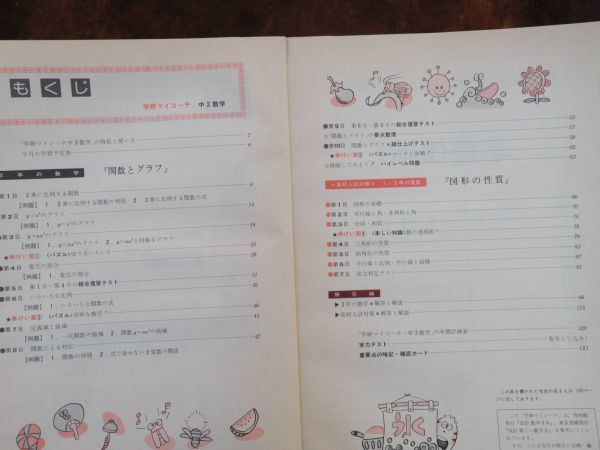 もくじ
学研マイコーチ 中3数学
『学研マイコーチ中3数学』の特長と使い方 2
今月の学習予定表 6
3年の数学 『関数とグラフ』
第1日 2乗に比例する関数 8
【例題】 1. 2乗に比例する関数の判別 2. 2乗に比例する関数の式 14
第2日 y=x²のグラフ
【例題】 1. y=x²のグラフ
第3日 y=ax²のグラフ
【例題】 1. y=ax²のグラフ 2. y=ax²と対称なグラフ 25
★休けい室① 〈パズル〉 26
●第4日 変化の割合
【例題】 1. 変化の割合 31
●第5日 第1日〜第4日の総合復習テスト 35
●第6日 いろいろな比例
【例題】 1. いろいろな関数の式 40
★休けい室② 〈パズル〉奇妙な数字? 41
第7日 定義域と値域
【例題】 1. 一次関数の値域 2. 関数y=ax²の値域 47
第8日 関数による対応
【例題】 1. 関数の判別 2. 式で表せない2変数の関係
●第9日 第6日〜第8日の総合復習テスト 53
☆『関数とグラフ』の要点整理 57
●第10日 関数とグラフ★総仕上げテスト 58
★休けい室③ 〈パズル〉 62
☆挑戦してみよう! ハイレベル問題 63
★高校入試対策★ 1・2年の復習 『図形の性質』
●第1日 図形の基礎 66
●第2日 平行線と角・多角形と角 70
●第3日 合同・相似 74
★休けい室④ 〈楽しい知識〉 78
●第4日 三角形の性質 79
●第5日 四角形の性質 83
●第6日 平行線と比例・平行線と面積 87
●第7日 実力判定テスト 91
解答編
▶3年の数学★解答と解説 96
▶高校入試対策★解答と解説 115
『学研マイコーチ・中3数学』の年間計画表 120
実力テスト (巻末とじ込み)
重要点の暗記・確認カード 123
氷